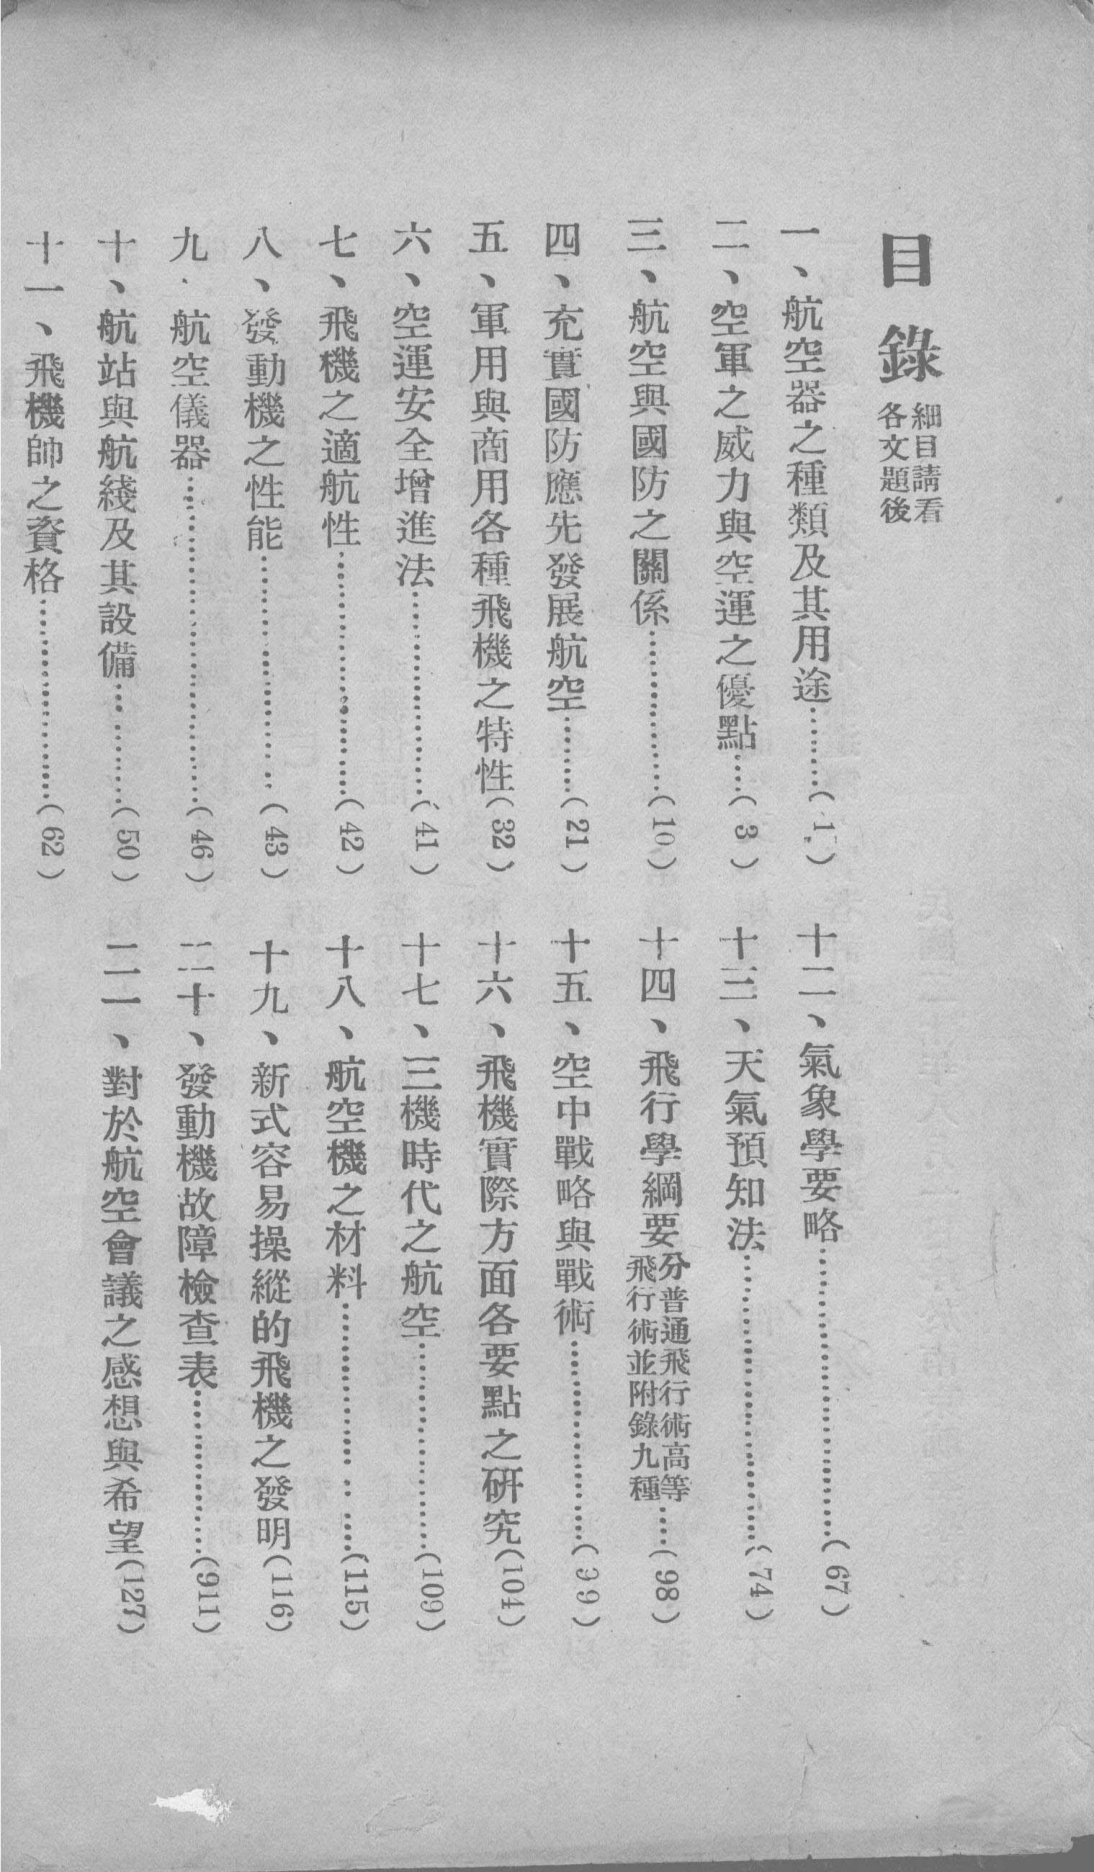 目錄 細目請看各文題後
一、航空器之種類及其用途………(1)
二、空軍之威力與空運之優點……(3)
三、航空與國防之關係………………(10)
四、充實國防應先發展航空………(21)
五、軍用與商用各種飛機之特性(32)
六、空運安全增進法…………………(41)
七、飛機之適航性……………………(42)
八、發動機之性能……………………(43)
九、航空儀器…………………………(46)
十、航站與航綫及其設備…………(50)
十一、飛機師之資格…………………(62)
十二、氣象學要略……………………(67)
十三、天氣預知法……………………(74)
十四、飛行學綱要分普通飛行術高等飛行術並附錄九種……(98)
十五、空中戰略與戰術………………(99)
十六、飛機實際方面各要點之研究(104)
十七、三機時代之航空………………(109)
十八、航空機之材料…………………(115)
十九、新式容易操縱的飛機之發明(116)
二十、發動機故障檢查表……………(911)
二一、對於航空會議之感想與希望(127)